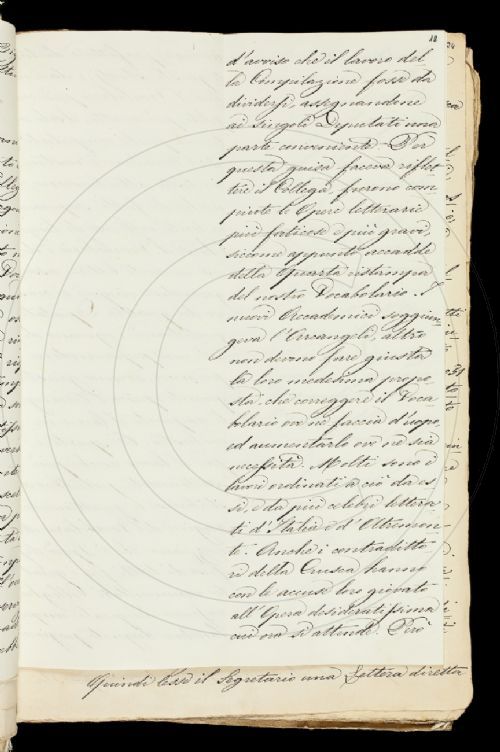 18
d'avviso che il lavoro del
la Compilazione fosse da
dividersi assegnandone
ai singoli Deputati una
parte conveniente. Per
questa guisa faceva riflet
tere il Collega, furono com
piute le Opere letterarie
più faticose e più gravi,
siccome appunto accadde
della Quarta ristampa
del nostro Vocabolario. I
nuovi Accademici soggiun
geva l'Arcangeli, altro
non devono fare giusta
la loro medesima propo
sta, che correggere il Voca
bolario ove ne faccia d'uopo,
ed aumentarlo ove ne sia
necessità. Molti sono i
lavori ordinati a ciò da es
si, e da più celebri lettera
ti d'Italia e d'Oltremon
te. Anche i contraditto
ri della Crusca hanno
con le accuse loro giovato
all'Opera desideratissima
cui ora si attende. Però
Quindi lesse il Segretario una Lettera diretta